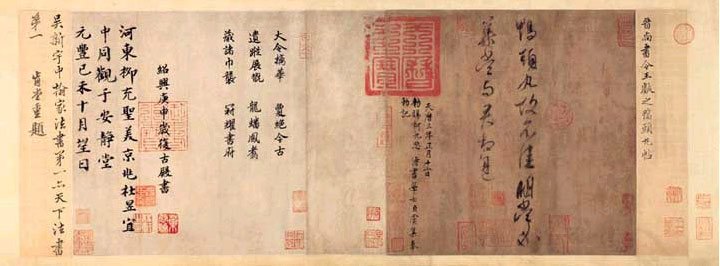 晉尚書令王獻之鴨頭丸帖
鴨頭丸故不佳明當必
集當與君相見
天曆三年正月十二日
敕賜柯九思 侍書學士臣虞集奉
敕記
大令摛華 夐絕今古
遺蹤展翫 龍蟠鳳翥
藏諸巾襲 冠耀書府
紹興庚申歲復古殿書
河東柳充聖美京兆杜昱宜
中同觀于安靜堂
元豐己未十月望日
吳新宇中翰家法書第一亦天下法書
第一 肯堂重題